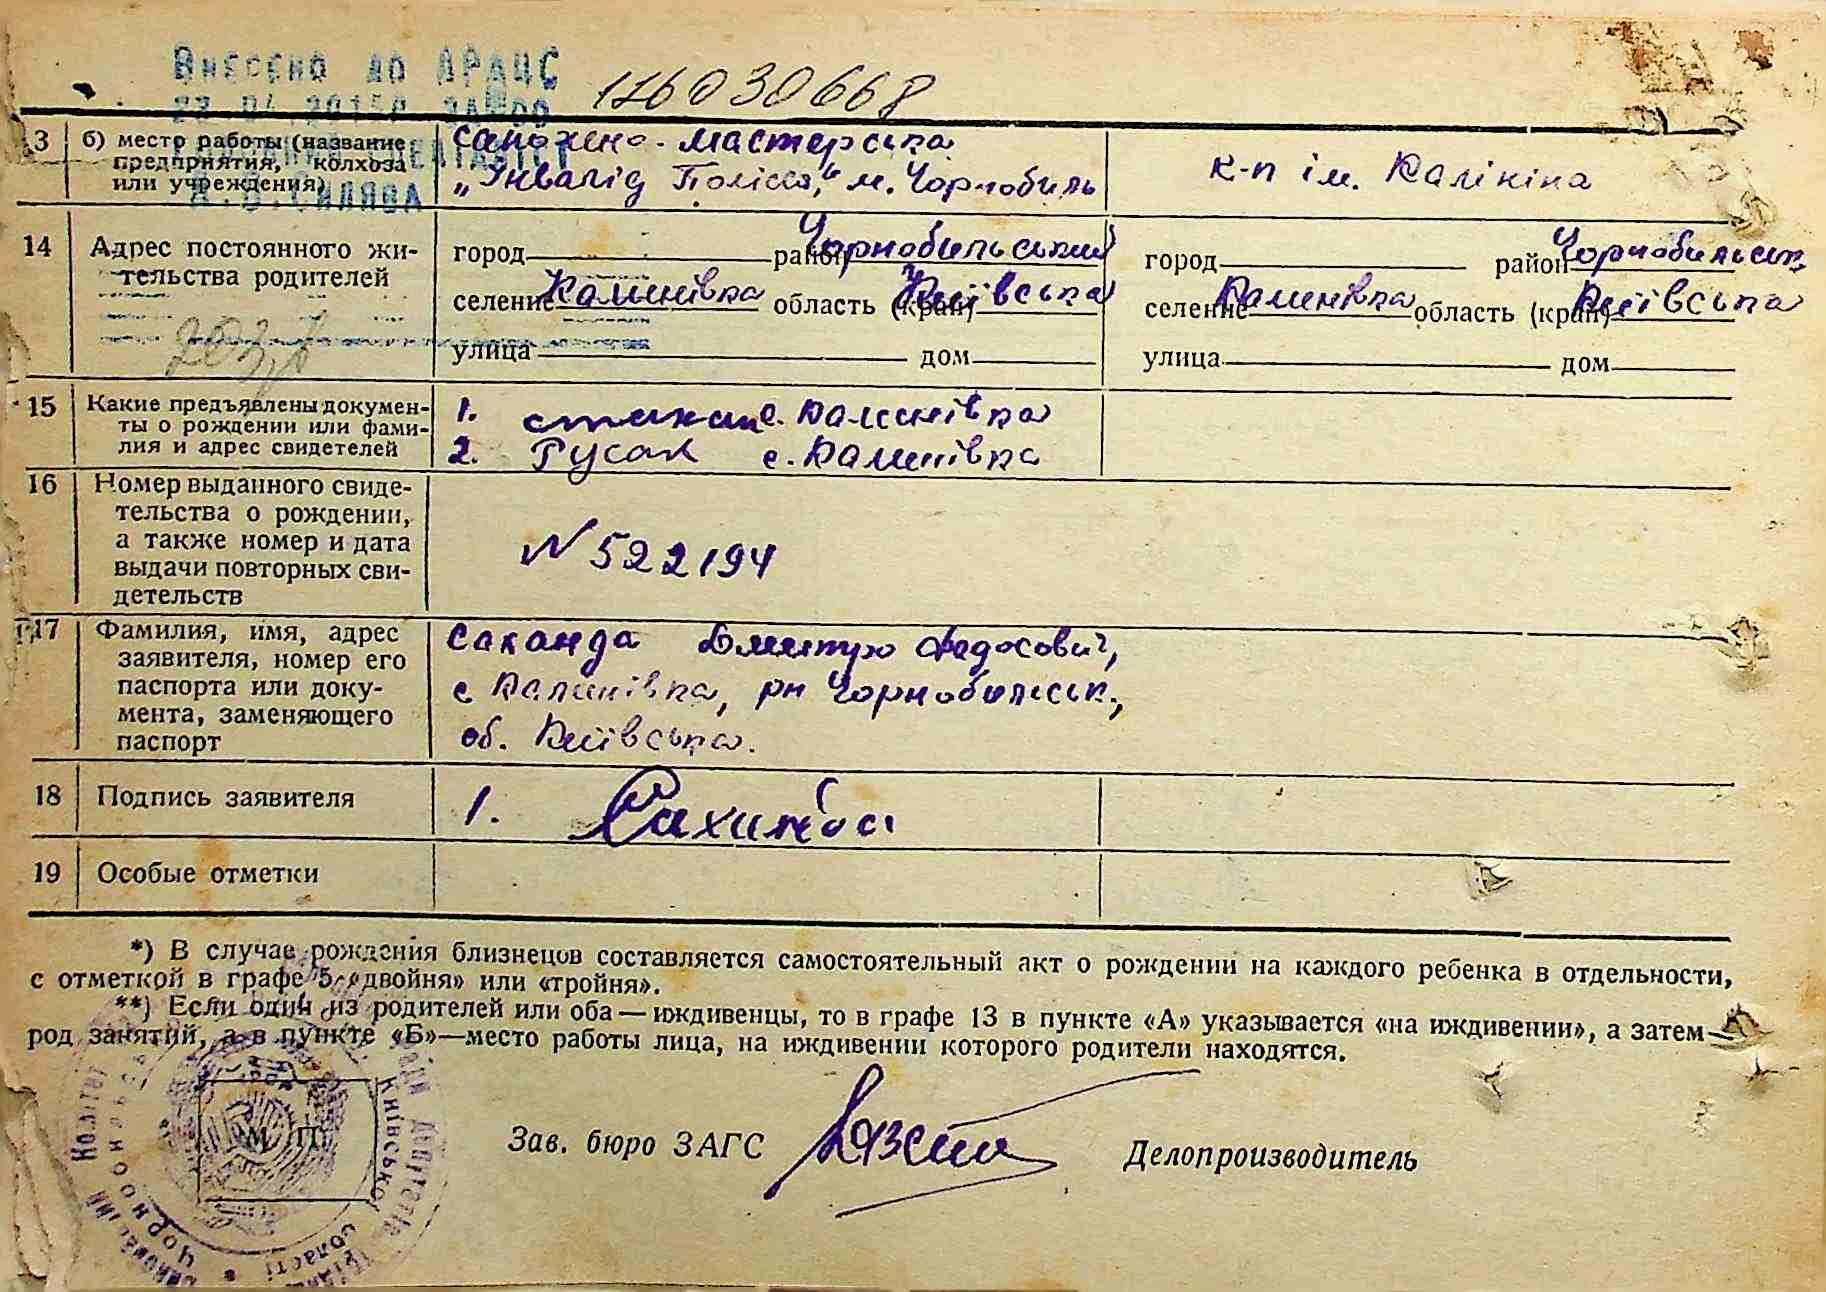 Внесено до ДРАЦС
116030668
13 б) место работы (название предприятия, колхоза или учреждения)
Сапожно-мастерська
„Інвалід Полісся," м. Чорнобиль
к-п ім. Калініна
14 Адрес постоянного жительства родителей
город район Чорнобильський
селение Калинівка область (край) Київська
улица дом
город район Чорнобильськ.
селение Калинівка область (край) Київська
улица дом
15 Какие предъявлены документы о рождении или фамилия и адрес свидетелей
1. с. Калинівка
2. Русак с. Калинівка
16 Номер выданного свидетельства о рождении, а также номер и дата выдачи повторных свидетельств
N 522194
17 Фамилия, имя, адрес заявителя, номер его паспорта или документа, заменяющего паспорт
Саханда Дмитро Федосович,
с Калинівка, рн Чорнобильськ.,
об. Київська.
18 Подпись заявителя
1.
19 Особые отметки
*) В случае рождения близнецов составляется самостоятельный акт о рождении на каждого ребенка в отдельности,
с отметкой в графе 5 «двойня» или «тройня».
**) Если один из родителей или оба — иждивенцы, то в графе 13 в пункте «А» указывается «на иждивении», а затем —
род занятий, а в пункте «Б»—место работы лица, на иждивении которого родители находятся.
М. П.
Київської області
Зав. бюро ЗАГС
Делопроизводитель